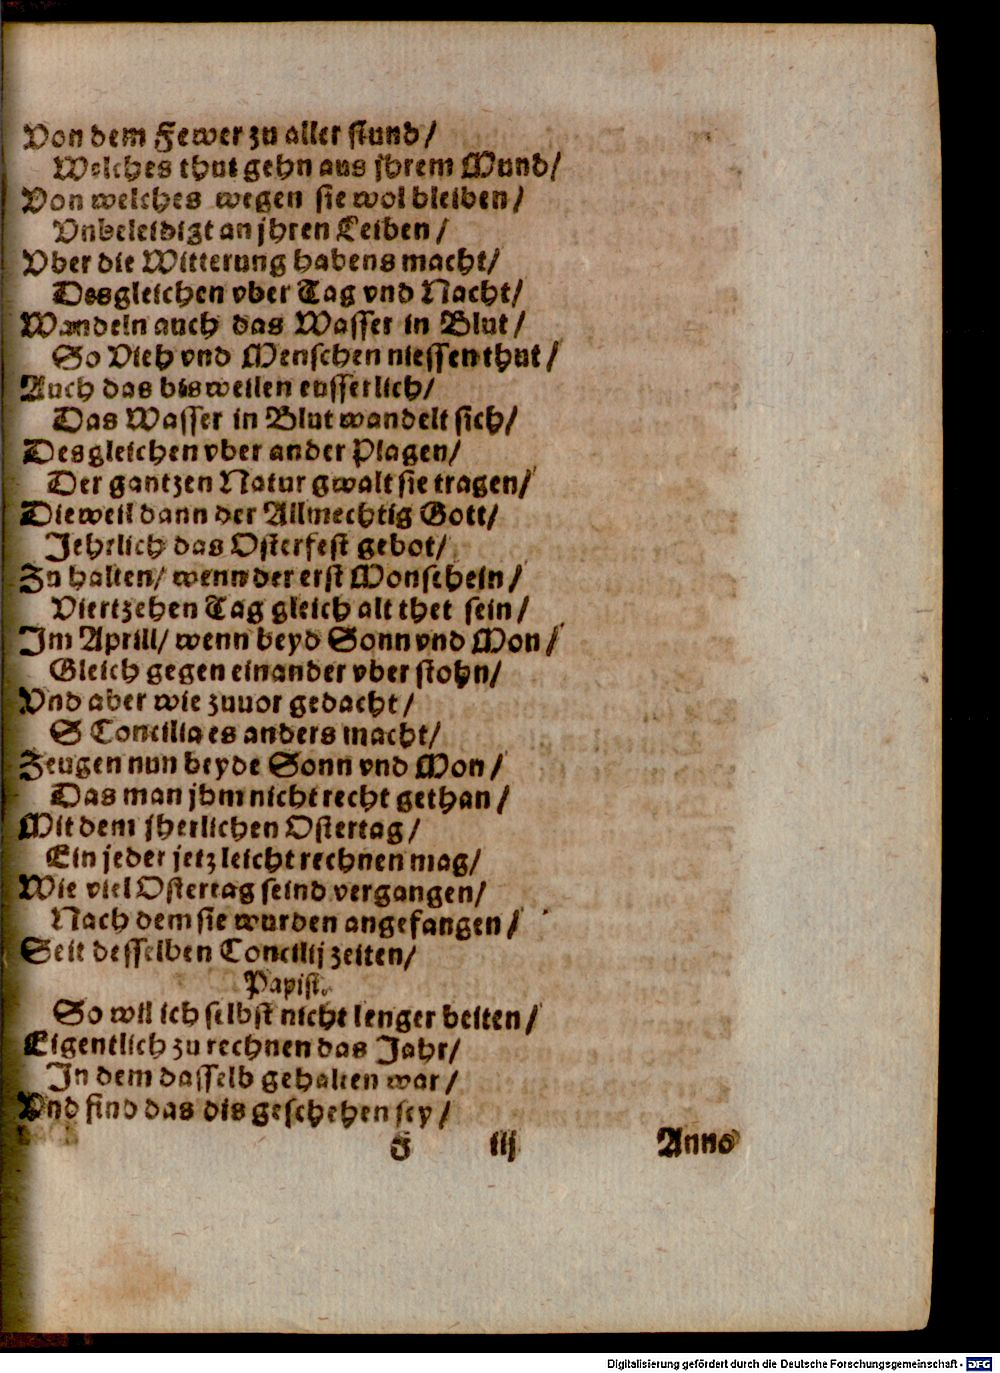 Von dem Fewer zu aller stund/
Welches thut gehn aus jhrem Mund/
Von welches wegen sie wol bleiben/
Vnbeleidigt an jhren Leiben/
Vber die Witterung habens macht/
Desgleichen vber Tag vnd Nacht/
Wandeln auch das Wasser in Blut/
So Vieh vnd Menschen niessen thut/
Auch das bisweilen eusserlich/
Das Wasser in Blut wandelt sich/
Desgleichen vber ander Plagen/
Der gantzen Natur gwalt sie tragen/
Dieweil dann der Allmechtig Gott/
Jehrlich das Osterfest gebot/
Zu halten/ wenn der erst Monschein/
Viertzehen Tag gleich alt thet sein/
Im Aprill/ wenn beyd Sonn vnd Mon/
Gleich gegen einander vber stohn/
Vnd aber wie zuuor gedacht/
S Concilia es anders macht/
Zeugen nun beyde Sonn vnd Mon/
Das man jhm nicht recht gethan/
Mit dem jherlichen Ostertag/
Ein jeder jetz leicht rechnen mag/
Wie viel Ostertag seind vergangen/
Nach dem sie wurden angefangen/
Seit desselben Concilij zeiten/
Papist.
So wil ich selbst nicht lenger beiten/
Eigentlich zu rechnen das Jahr/
In dem dasselb gehalten war/
Vnd find das dis geschehen sey/
F iij Anno
Digitalisierung gefördert durch die Deutsche Forschungsgemeinschaft - DFG